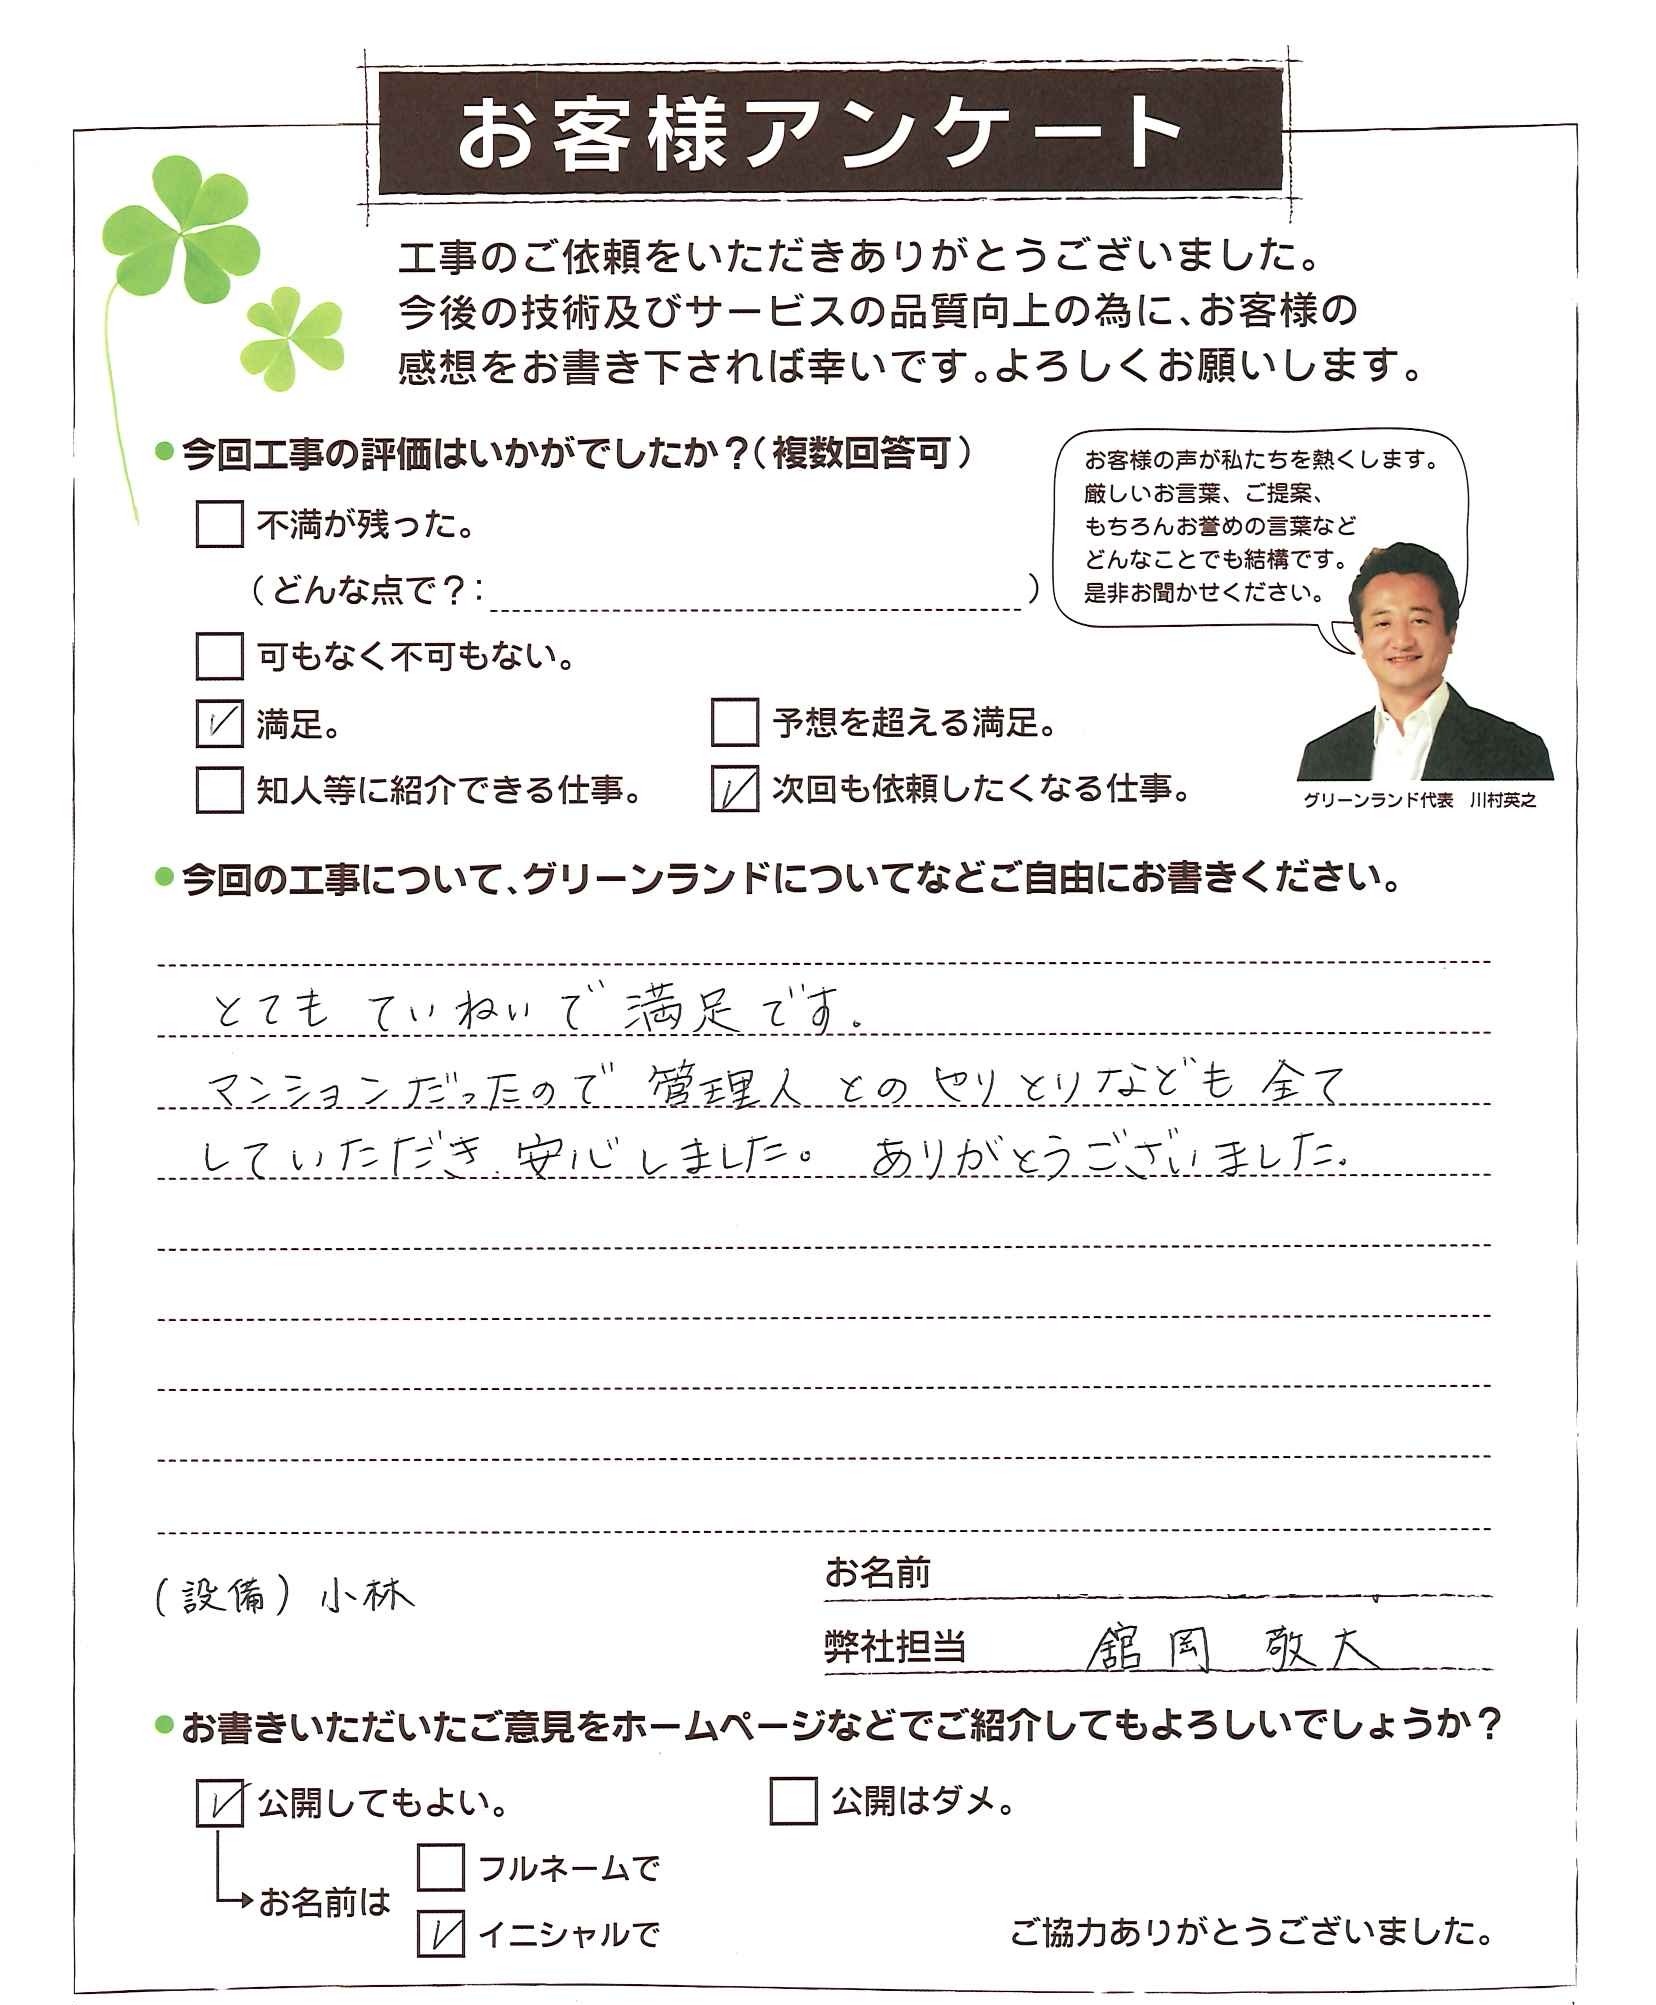 お客様アンケート
工事のご依頼をいただきありがとうございました。
今後の技術及びサービスの品質向上の為に、お客様の
感想をお書き下されば幸いです。よろしくお願いします。
●今回工事の評価はいかがでしたか？（複数回答可）
お客様の声が私たちを熱くします。
厳しいお言葉、ご提案、
もちろんお誉めの言葉など
どんなことでも結構です。
是非お聞かせください。
不満が残った。
（どんな点で？：　）
可もなく不可もない。
満足。　予想を超える満足。
知人等に紹介できる仕事。　次回も依頼したくなる仕事。
グリーンランド代表　川村英之
●今回の工事について、グリーンランドについてなどご自由にお書きください。
とても ていねいで 満足です。
マンションだったので 管理人 とのやりとりなども 全て
していただき 安心しました。 ありがとうございました。
お名前
(設備) 小林
弊社担当　舘岡 敬大
●お書きいただいたご意見をホームページなどでご紹介してもよろしいでしょうか？
公開してもよい。　公開はダメ。
フルネームで
お名前は
イニシャルで
ご協力ありがとうございました。